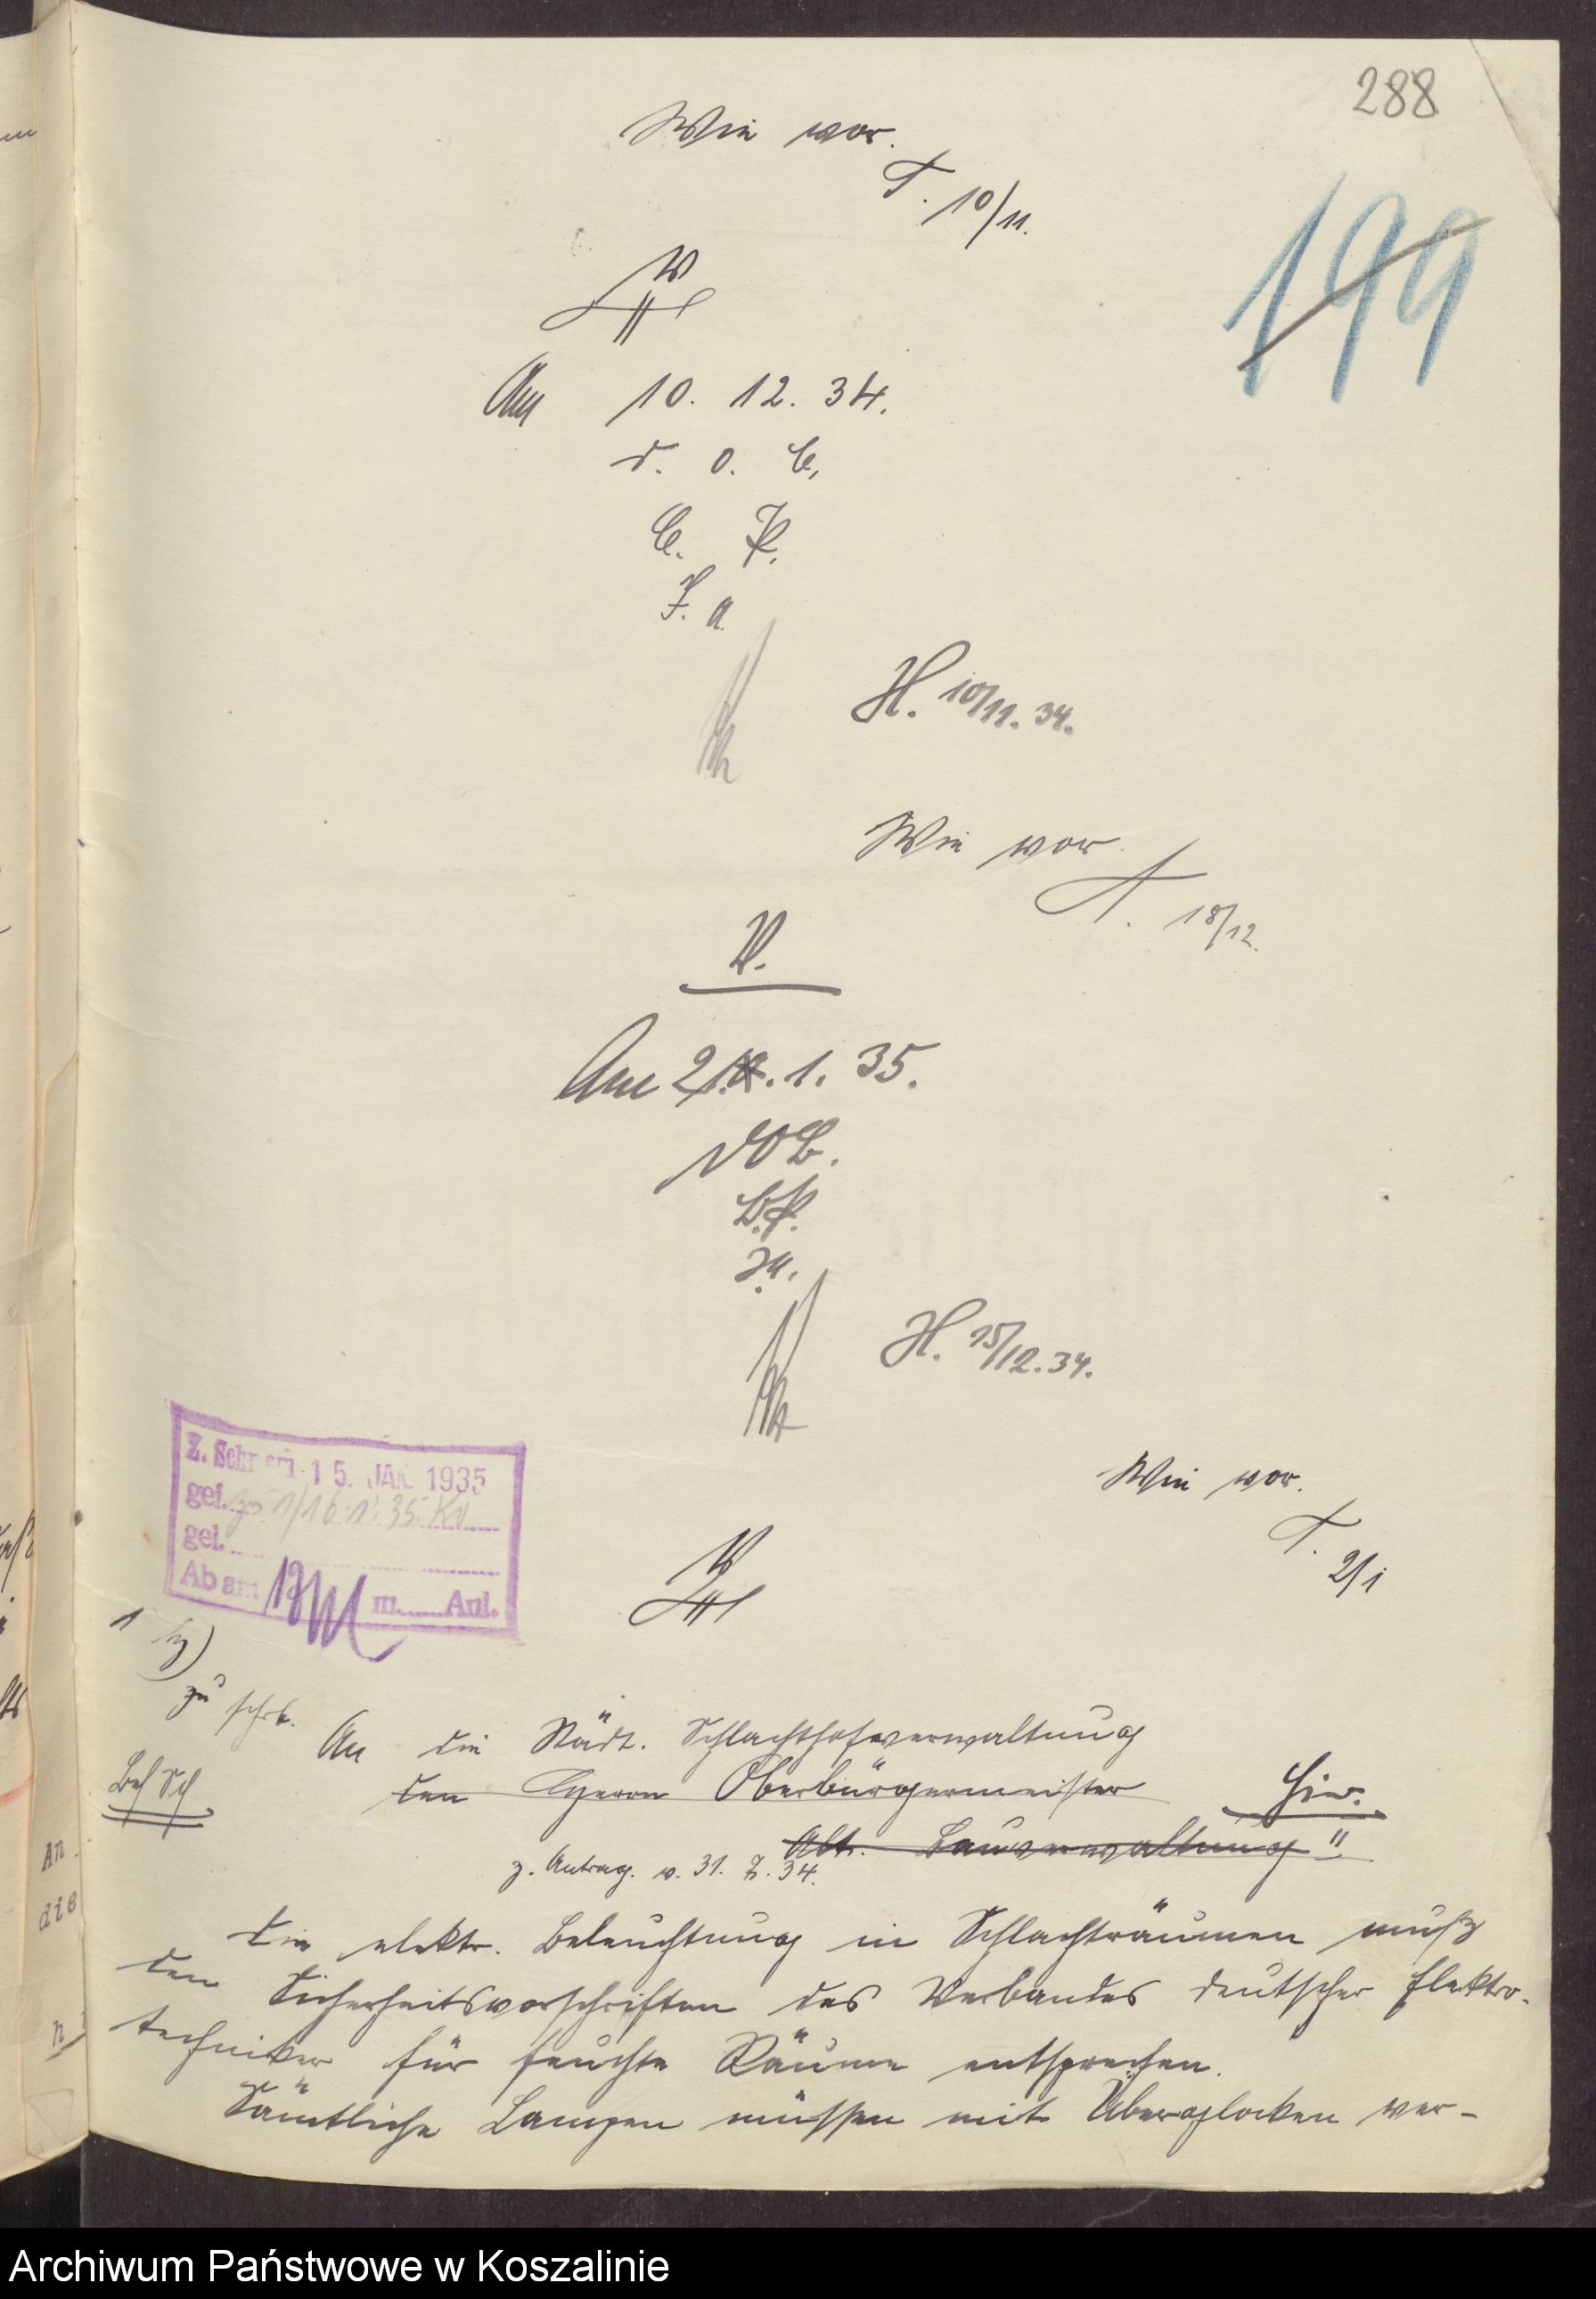 288
Wie vor.
T. 10/11.
199
W
Am 10. 12. 34.
d. O. B.
B. P.
J. A.
H. 10/11. 34.
Wie vor.
T. 18/12.
W.
Am 21. 1. 35.
D O B.
B. P.
J. A.
H. 15/12. 34.
Wie vor.
T. 2/1
W
Z. Schreib. 15. JAN. 1935
gef. zu 1/16. 1. 35. Ko
gel.
Ab am m. Anl.
1
zu schrb.
An die Städt. Schlachthofverwaltung
den Herrn Oberbürgermeister
Hier.
Abt. Bauverwaltung
z. Antrag. v. 31. 7. 34.
Die elektr. Beleuchtung in Schlachträumen muß
den Sicherheitsvorschriften des Verbandes deutscher Elektro-
techniker für feuchte Räume entsprechen.
Sämtliche Lampen müssen mit Überglocken ver-
An
die
Archiwum Państwowe w Koszalinie